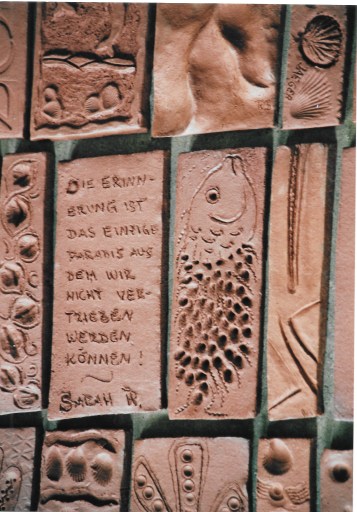 DIE ERINN-
ERUNG IST
DAS EINZIGE
PARADIS AUS
DEM WIR
NICHT VER-
TRIEBEN
WERDEN
KÖNNEN!
SARAH R.